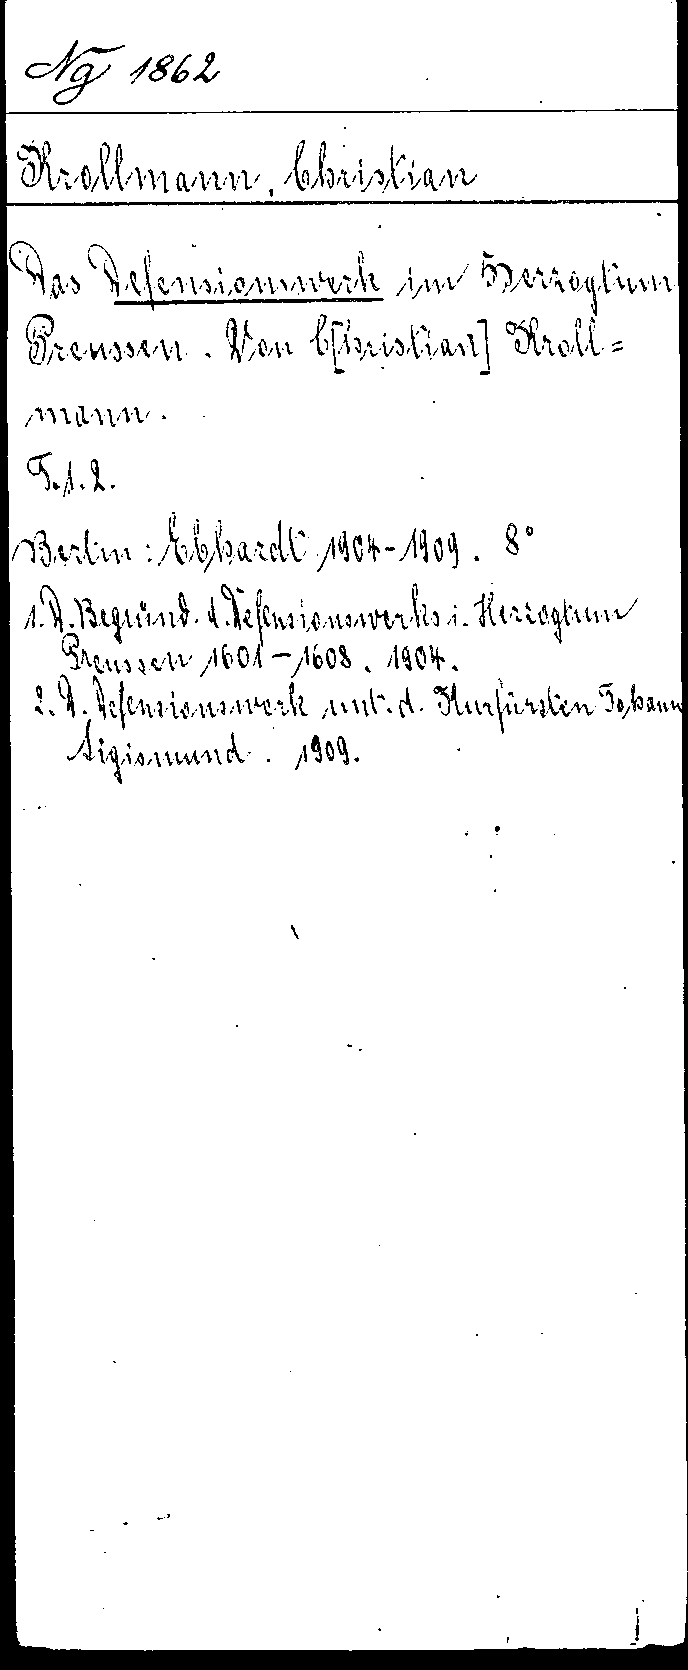 Ng 1862
Krollmann, Christian
Das Defensionswerk im Herzogtum
Preussen. Von C[hristian] Kroll=
mann.
T. 1. 2.
Berlin: Ebhardt 1904-1909. 8°
1. D. Begründ. d. Defensionswerks i. Herzogtum
Preussen 1601-1608. 1904.
2. D. Defensionswerk unt. d. Kurfürsten Johann
Sigismund. 1909.